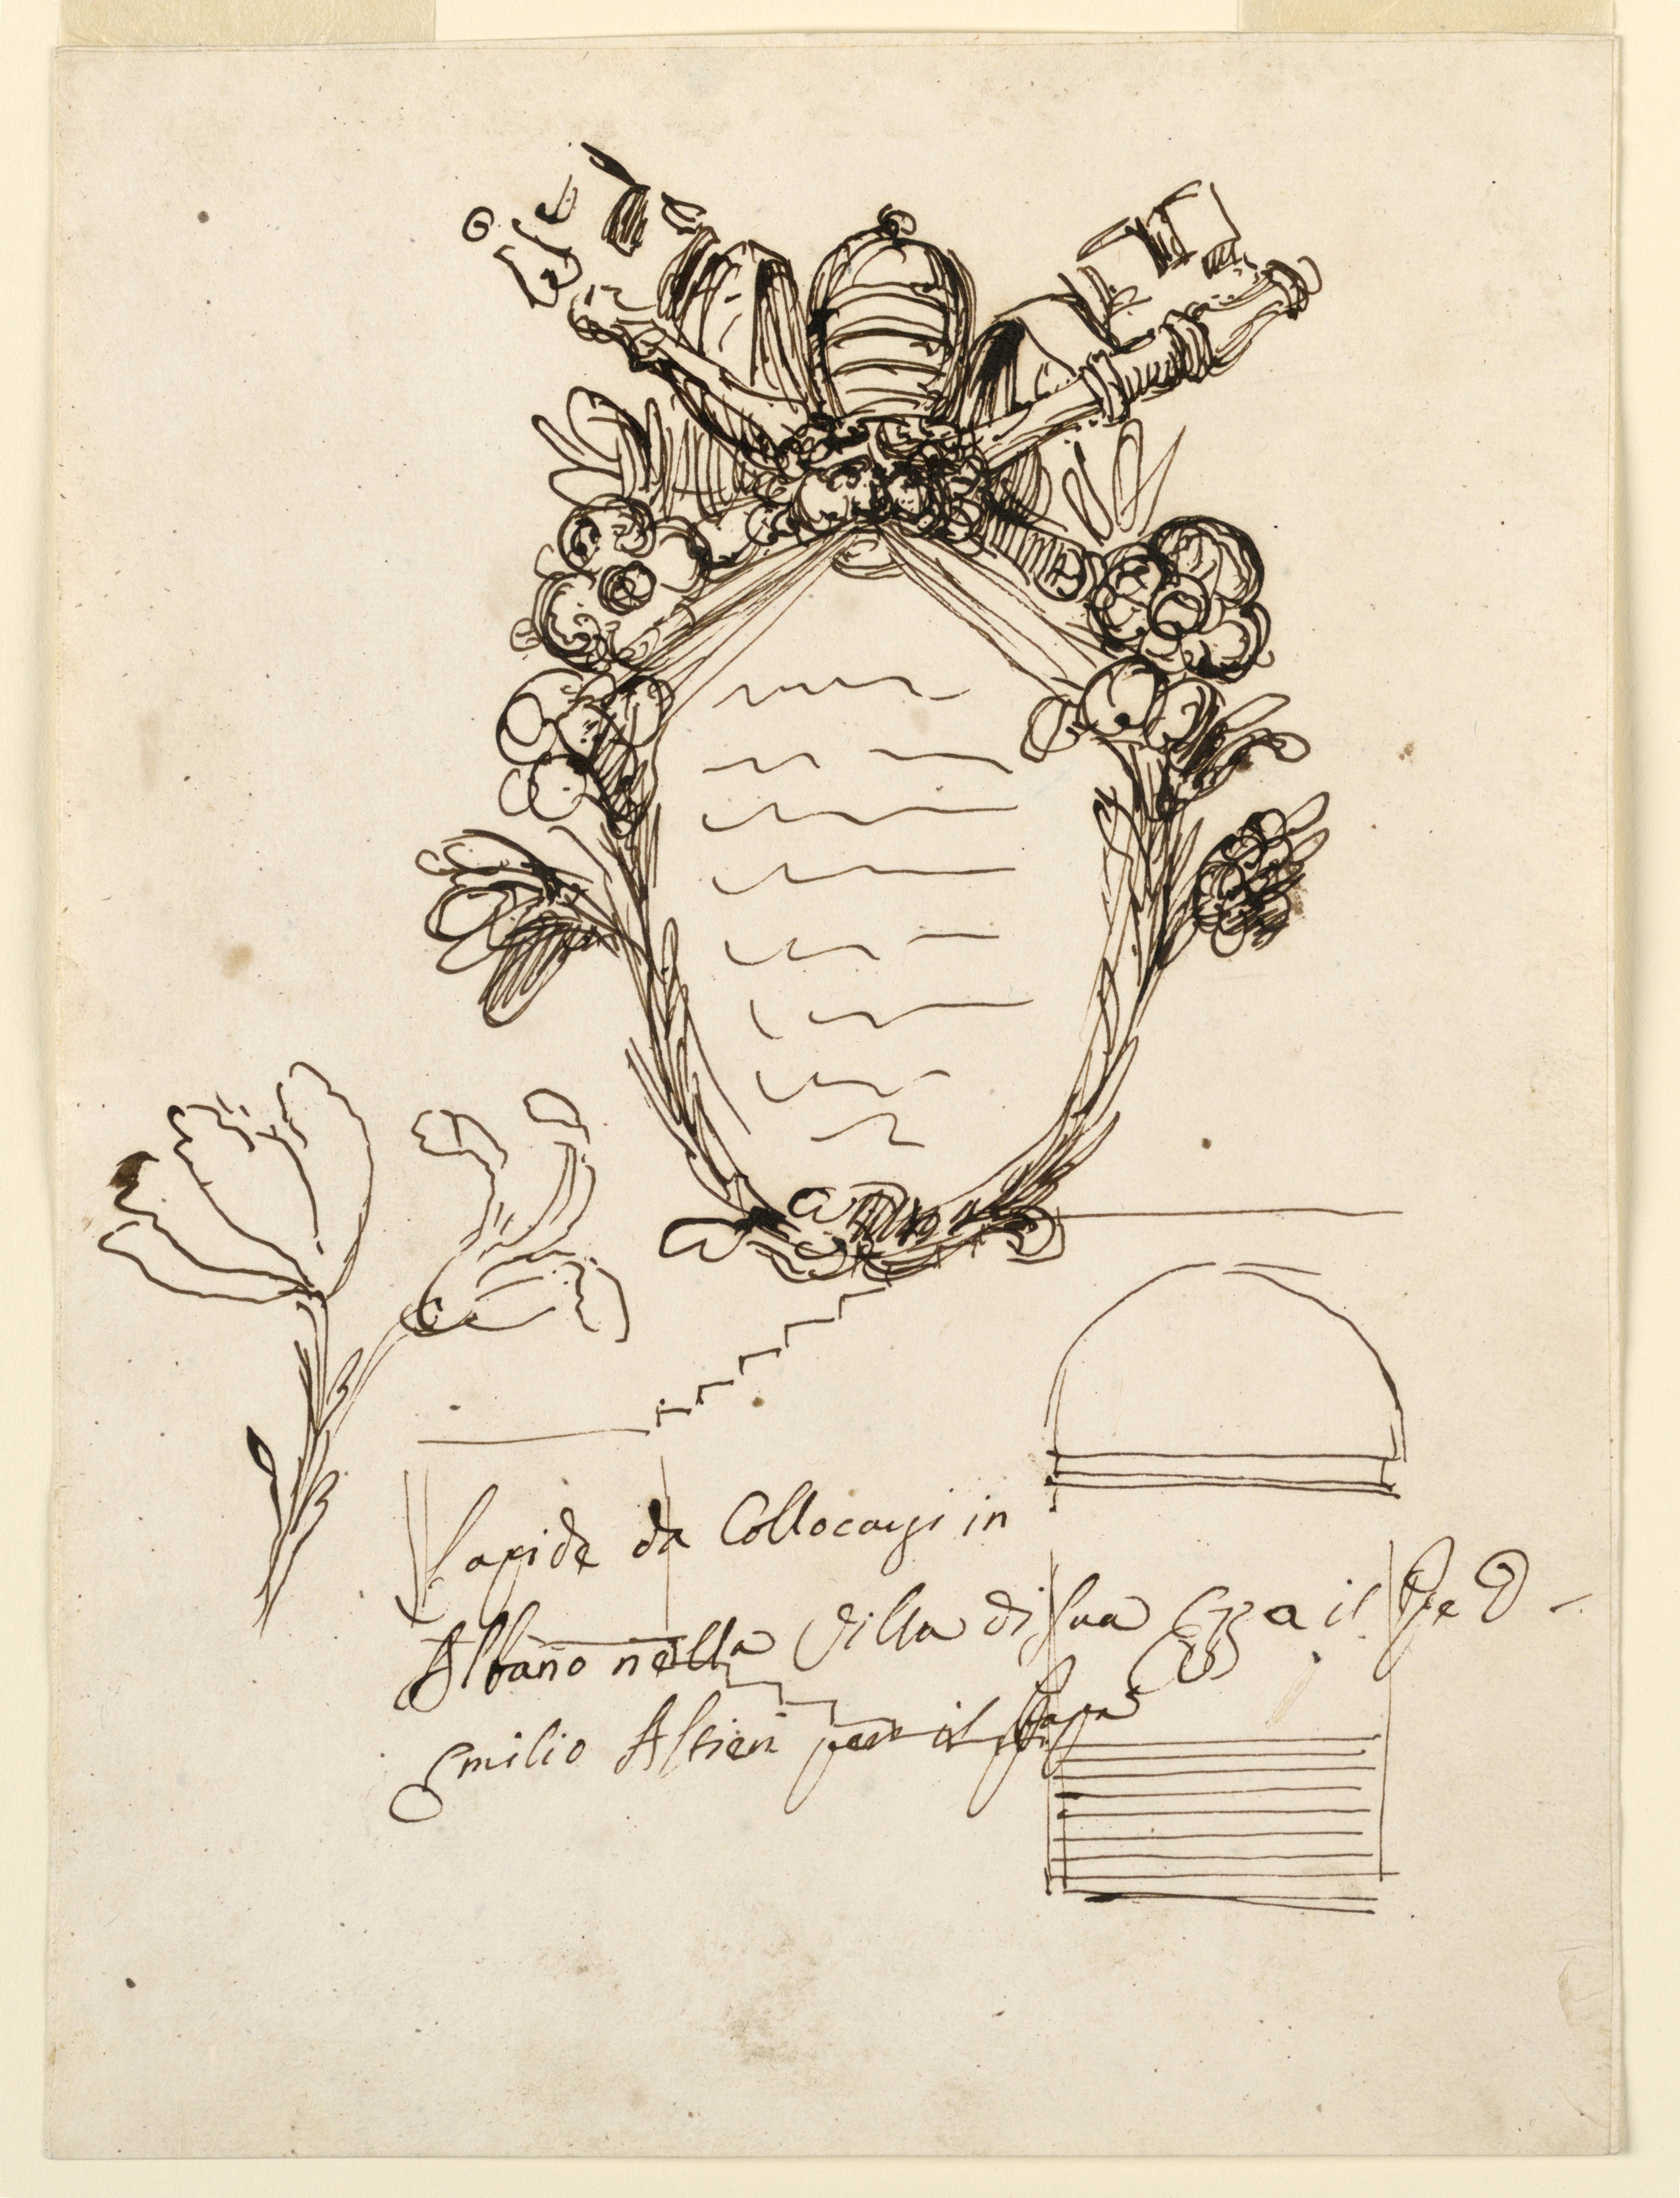 Lapide da Collocarsi in
Albano nella Villa di Sua Ecza il Pe D
Emilio Altieri per il Papa